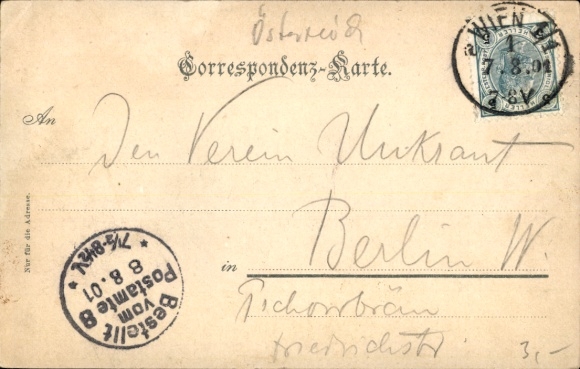 Österreich
Correspondenz-Karte.
WIEN 1/1
7.8.01
An
Den Verein Unkraut
Berlin W.
in
Tschorrbräu
Friedrichstr
Nur für die Adresse.
Bestellt
vom
Postamte 8
8 8.01
7½-8½V.
3,-